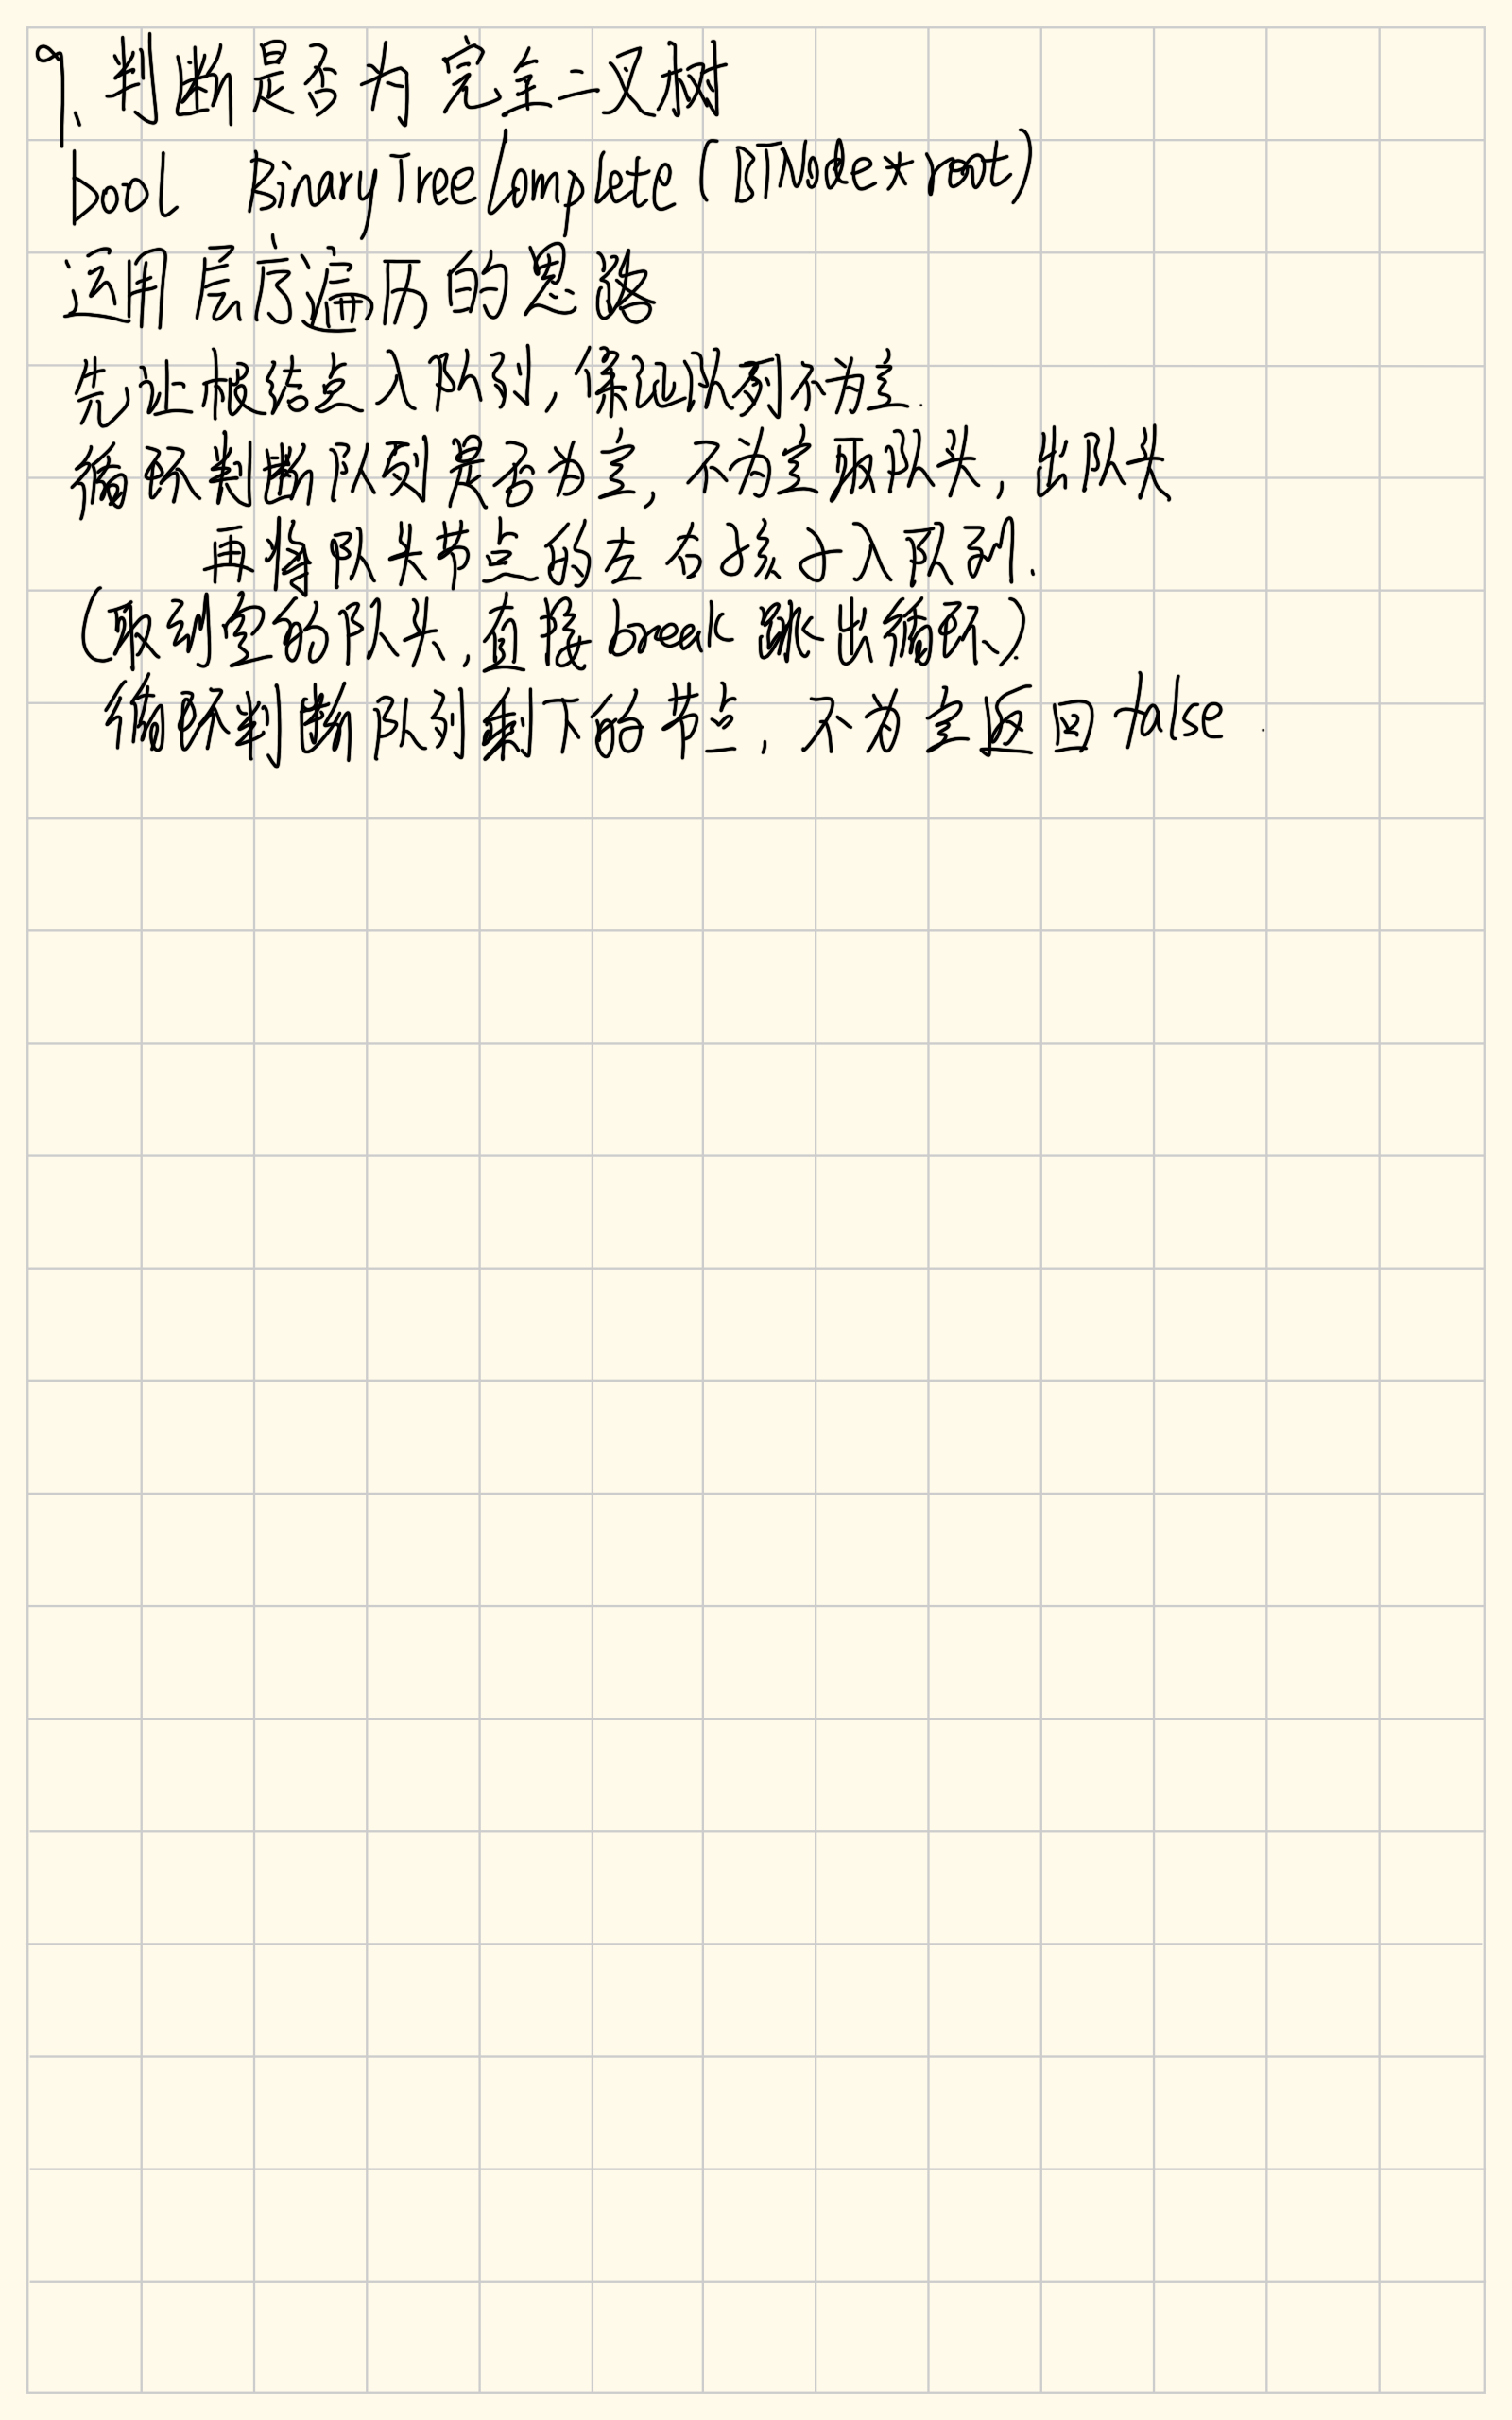 9. 判断是否为完全二叉树
bool BinaryTreeComplete(BTNode*root)
运用层序遍历的思路
先让根结点入队列，保证队列不为空.
循环判断队列是否为空，不为空取队头，出队头
再将队头节点的左右孩子入队列.
(取到空的队头，直接break跳出循环.)
循环判断队列剩下的节点，不为空返回false.